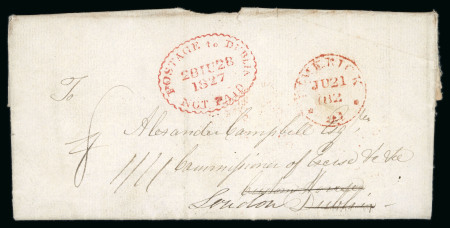 POSTAGE to DUBLIN
28 JU 28
1827
NOT PAID
LIMERICK
JU 21
To
Alexander Campbell Esq
Commissioner of Excise &c &c
Custom House
London Dublin